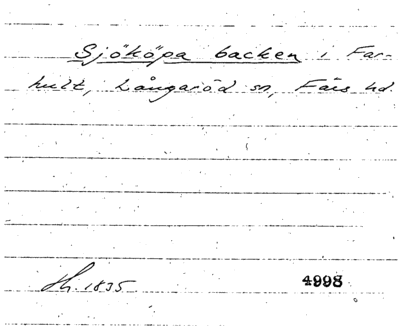 Sjököpa backen i Far-
hult, Långaröd sn, Färs hd.
Hh. 1835 4998